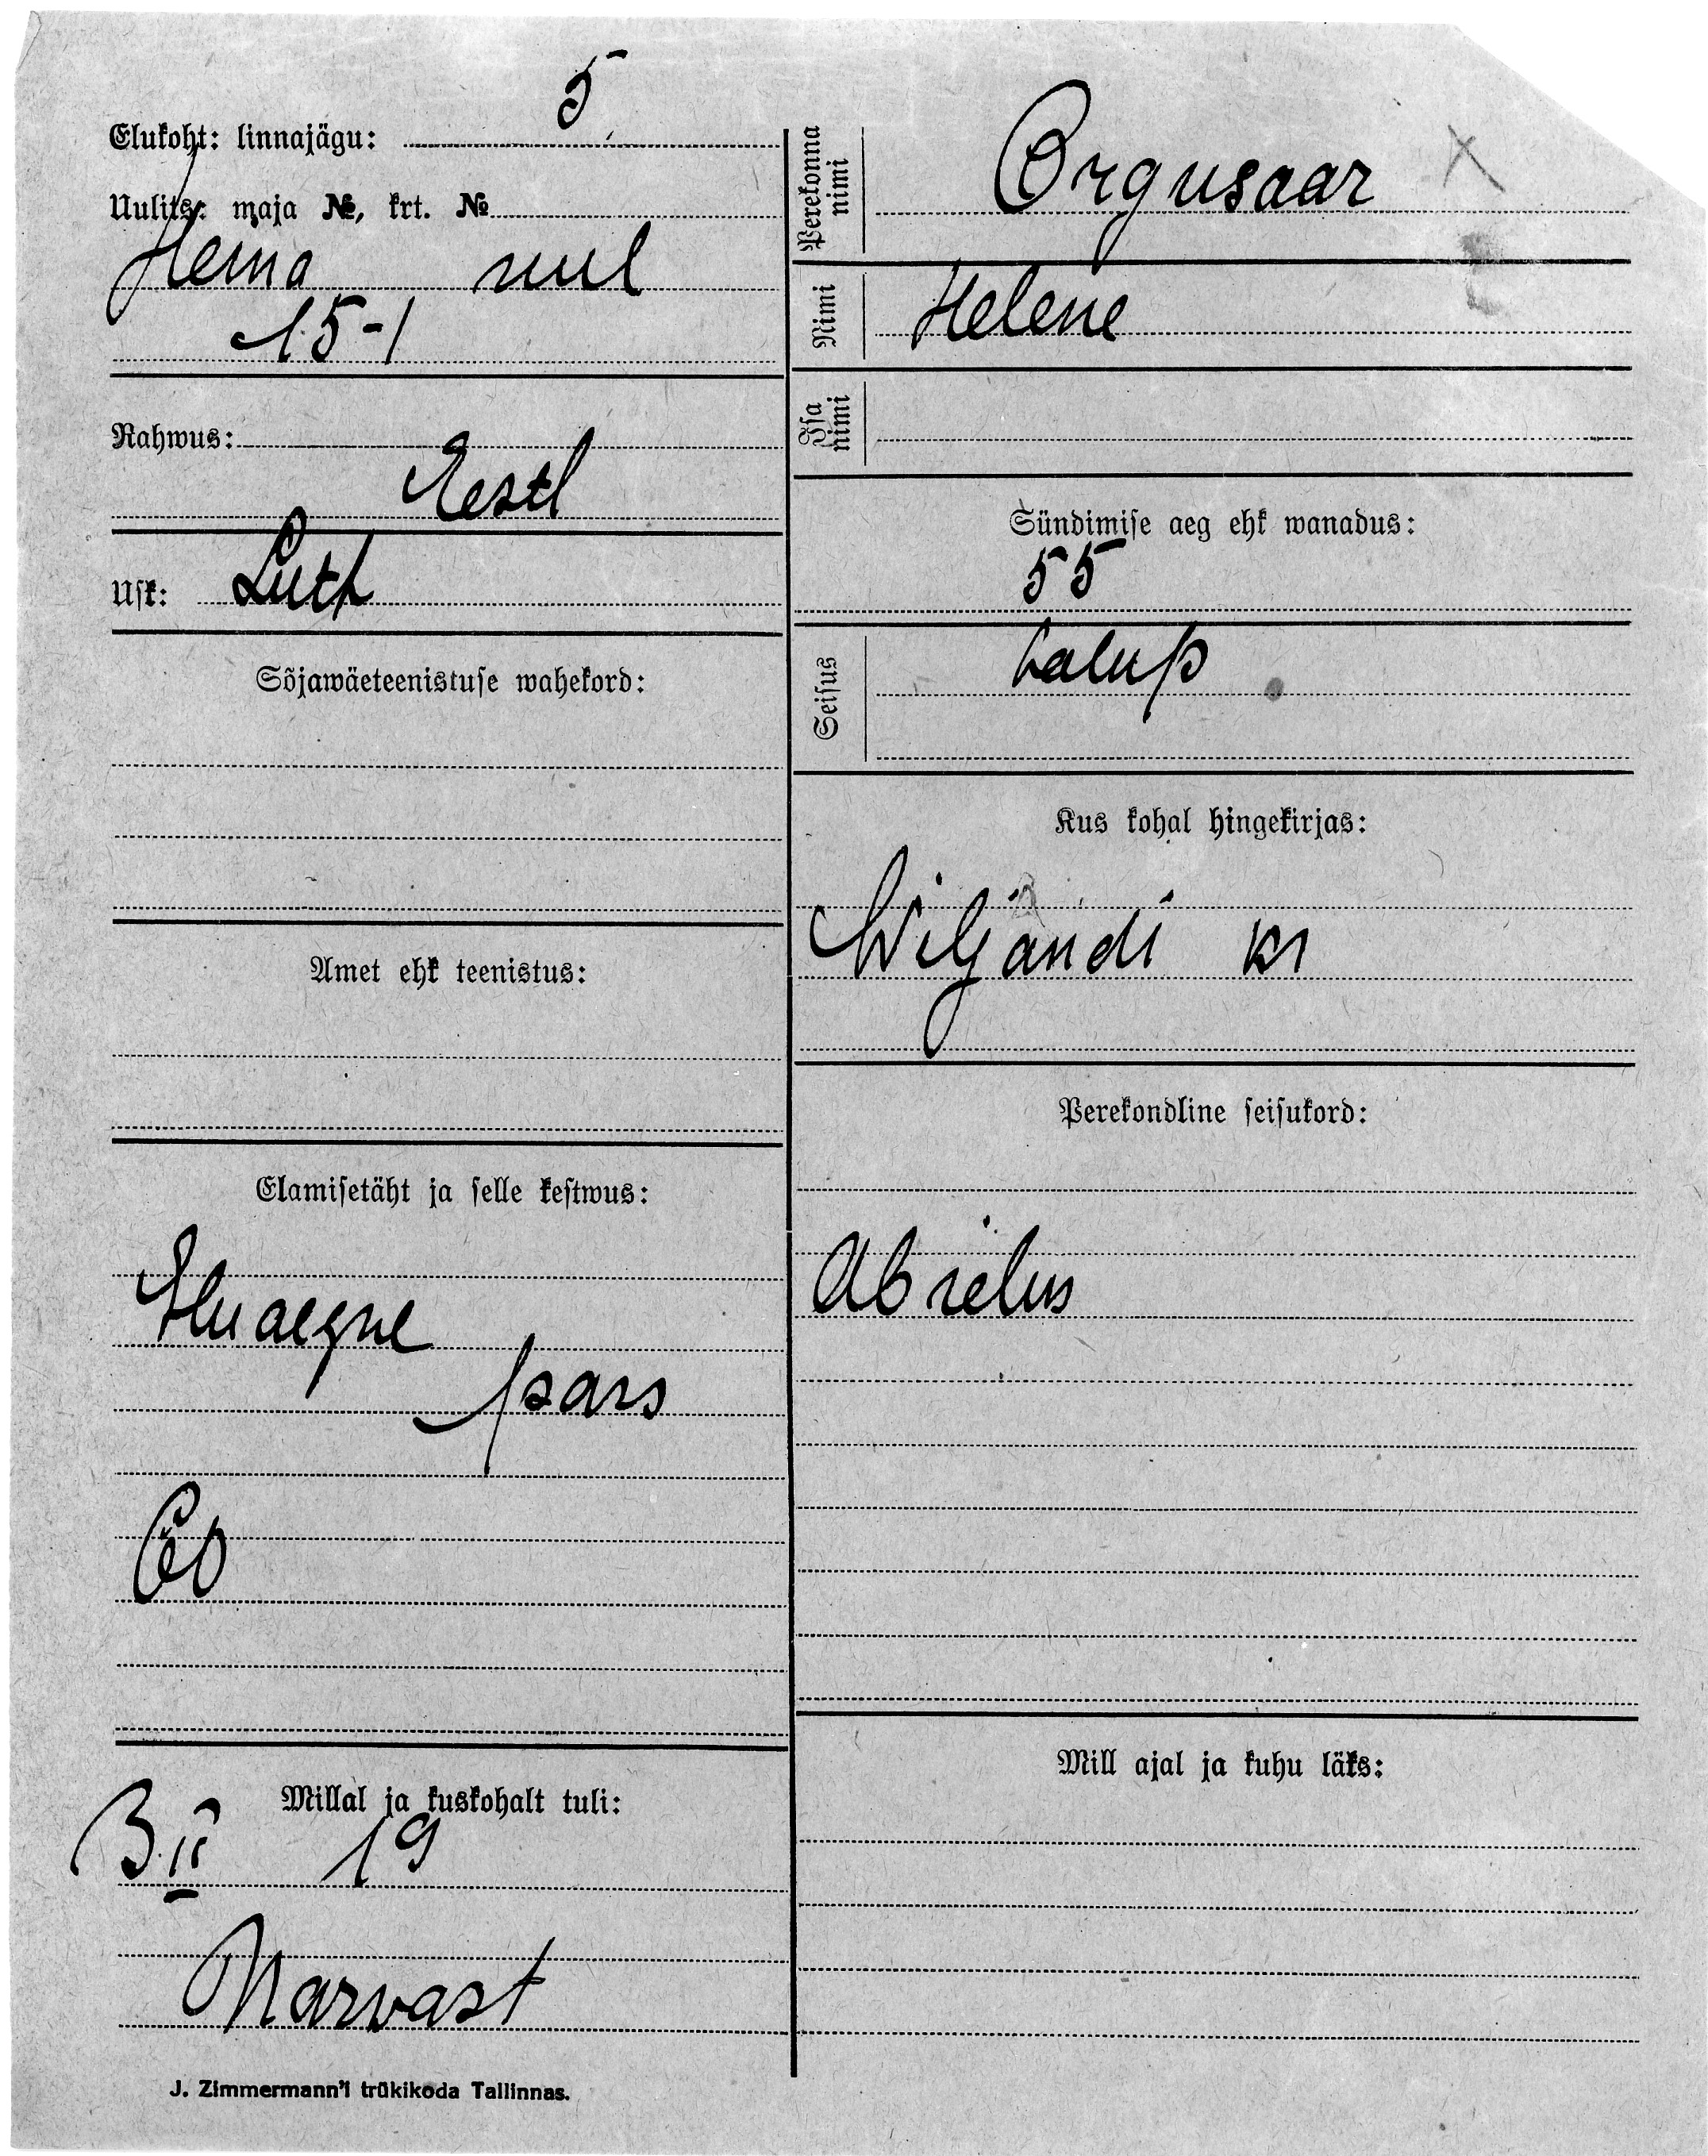 Elukoht: linnajägu: 5
Uulits: maja №, krt. №
Heina uul
15-1
Rahwus:
Eestl
Usk: Luth
Sõjawäeteenistuse wahekord:
Amet ehk teenistus:
Elamisetäht ja selle kestwus:
Eluaegne
pass
Millal ja kuskohalt tuli:
3 II 19
Narvast
J. Zimmermann'i trükikoda Tallinnas.
Perekonna nimi Orgusaar
Nimi Helene
Isa nimi
Sündimise aeg ehk wanadus:
55
Seisus talup
Kus kohal hingekirjas:
Wiljandi kr
Perekondline seisukord:
Abielus
Mill ajal ja kuhu läks: